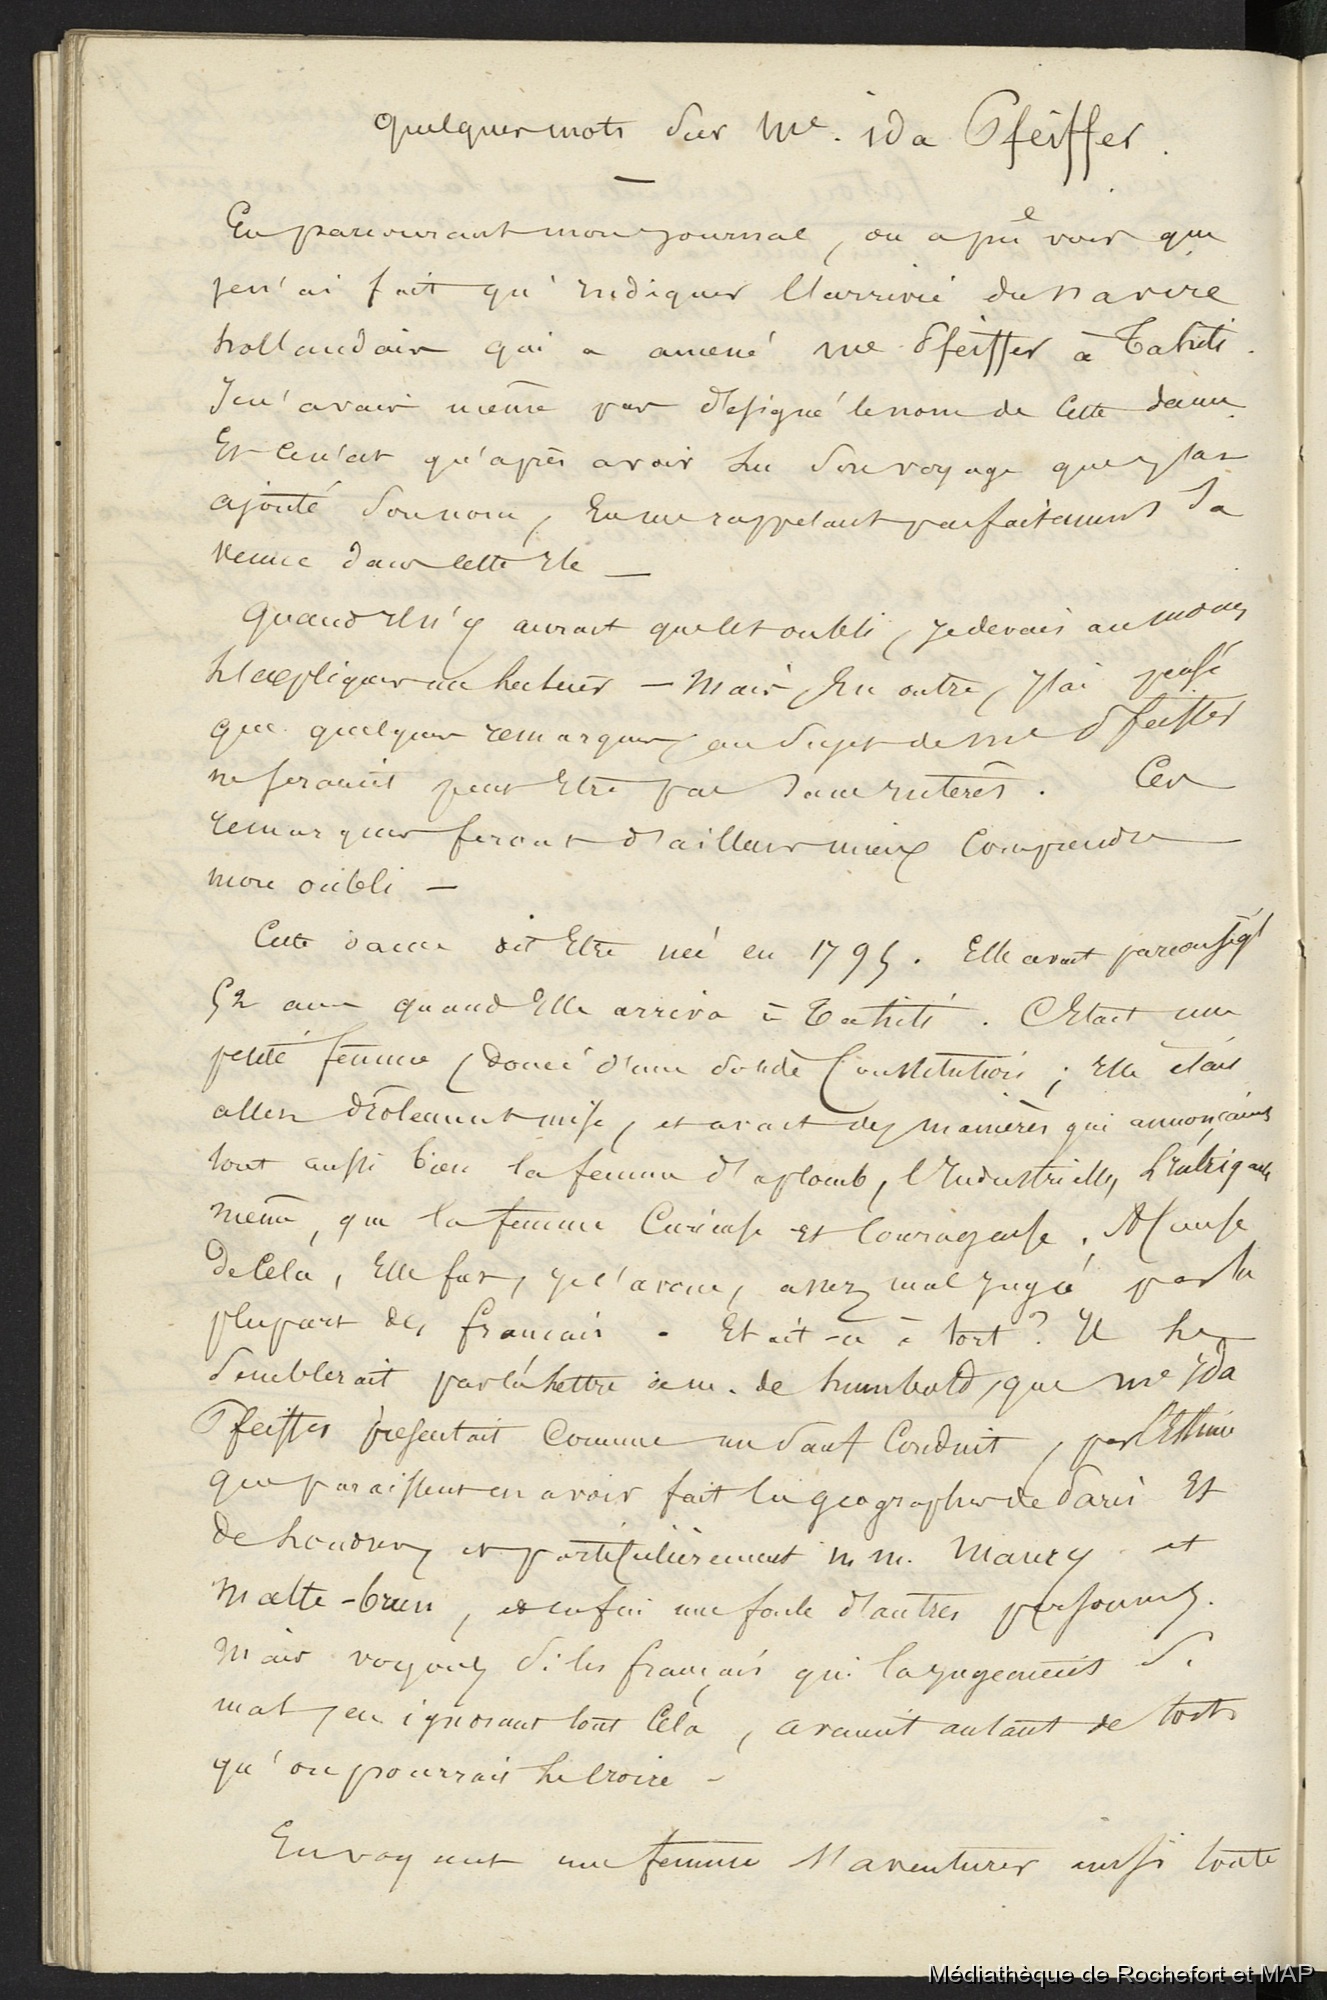 quelques mots sur Me. ida Pfeiffer.
En parcourant mon journal, on a pu le voir que
je n'ai fait qu'indiquer l'arrivée du navire
hollandais qui a amené me Pfeiffer à Tahiti.
Je n'avais même pas désigné le nom de cette dame.
Et ce n'est qu'après avoir lu son voyage que j'ai
ajouté son nom, en me rappelant parfaitement sa
venue dans cette île —
quand il n'y aurait que cet oubli, je devais au moins
l'expliquer au lecteur — mais, en outre, j'ai pensé
que quelques remarques au sujet de me Pfeiffer
ne seraient peut être pas sans intérêt. Ces
remarques feront d'ailleurs mieux comprendre
mon oubli —
Cette dame dit être née en 1795. Elle avait par conséqt
52 ans quand elle arriva à Tahiti. C'était une
petite femme, douée d'une solide constitution ; elle était
assez drôlement mise, et avait des manières qui annonçaient
tout aussi bien la femme d'aplomb, l'industrielle, l'intrigante
même, que la femme curieuse et courageuse. A cause
de cela, elle fut, je l'avoue, assez mal jugée par la
plupart des français. Etait-ce à tort ? Il le
semblerait par la lettre de m. de humbold, que me ida
Pfeiffer présentait comme un sauf conduit, par l'estime
que paraissent en avoir fait les géographes de Paris et
de Londres, et particulièrement m m. Maury et
malte-brun, et enfin une foule d'autres personnes.
Mais voyons si les français qui la jugeaient si
mal, en ignorant tout cela, avaient autant de torts
qu'on pourrait le croire —
En voyant une femme s'aventurer ainsi toute
Médiathèque de Rochefort et MAP